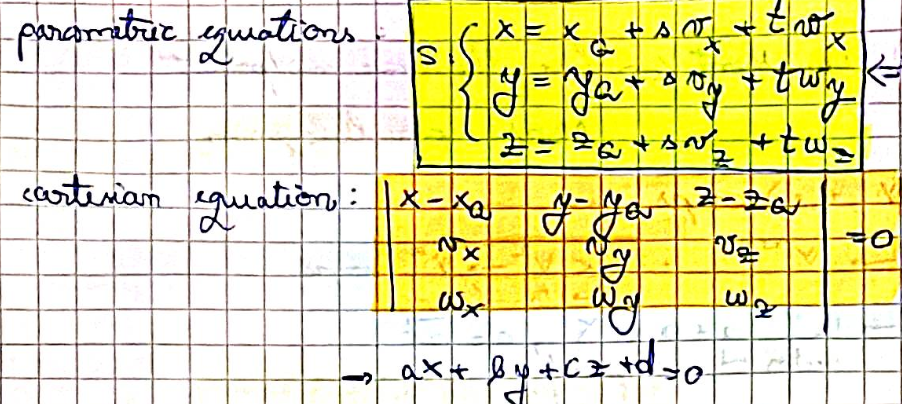 parametric equations : S: { x = x_Q + s v_x + t w_x
y = y_Q + s v_y + t w_y ⇐
z = z_Q + s v_z + t w_z
cartesian equation : | x - x_Q y - y_Q z - z_Q |
| v_x v_y v_z | = 0
| w_x w_y w_z |
→ ax + by + cz + d = 0